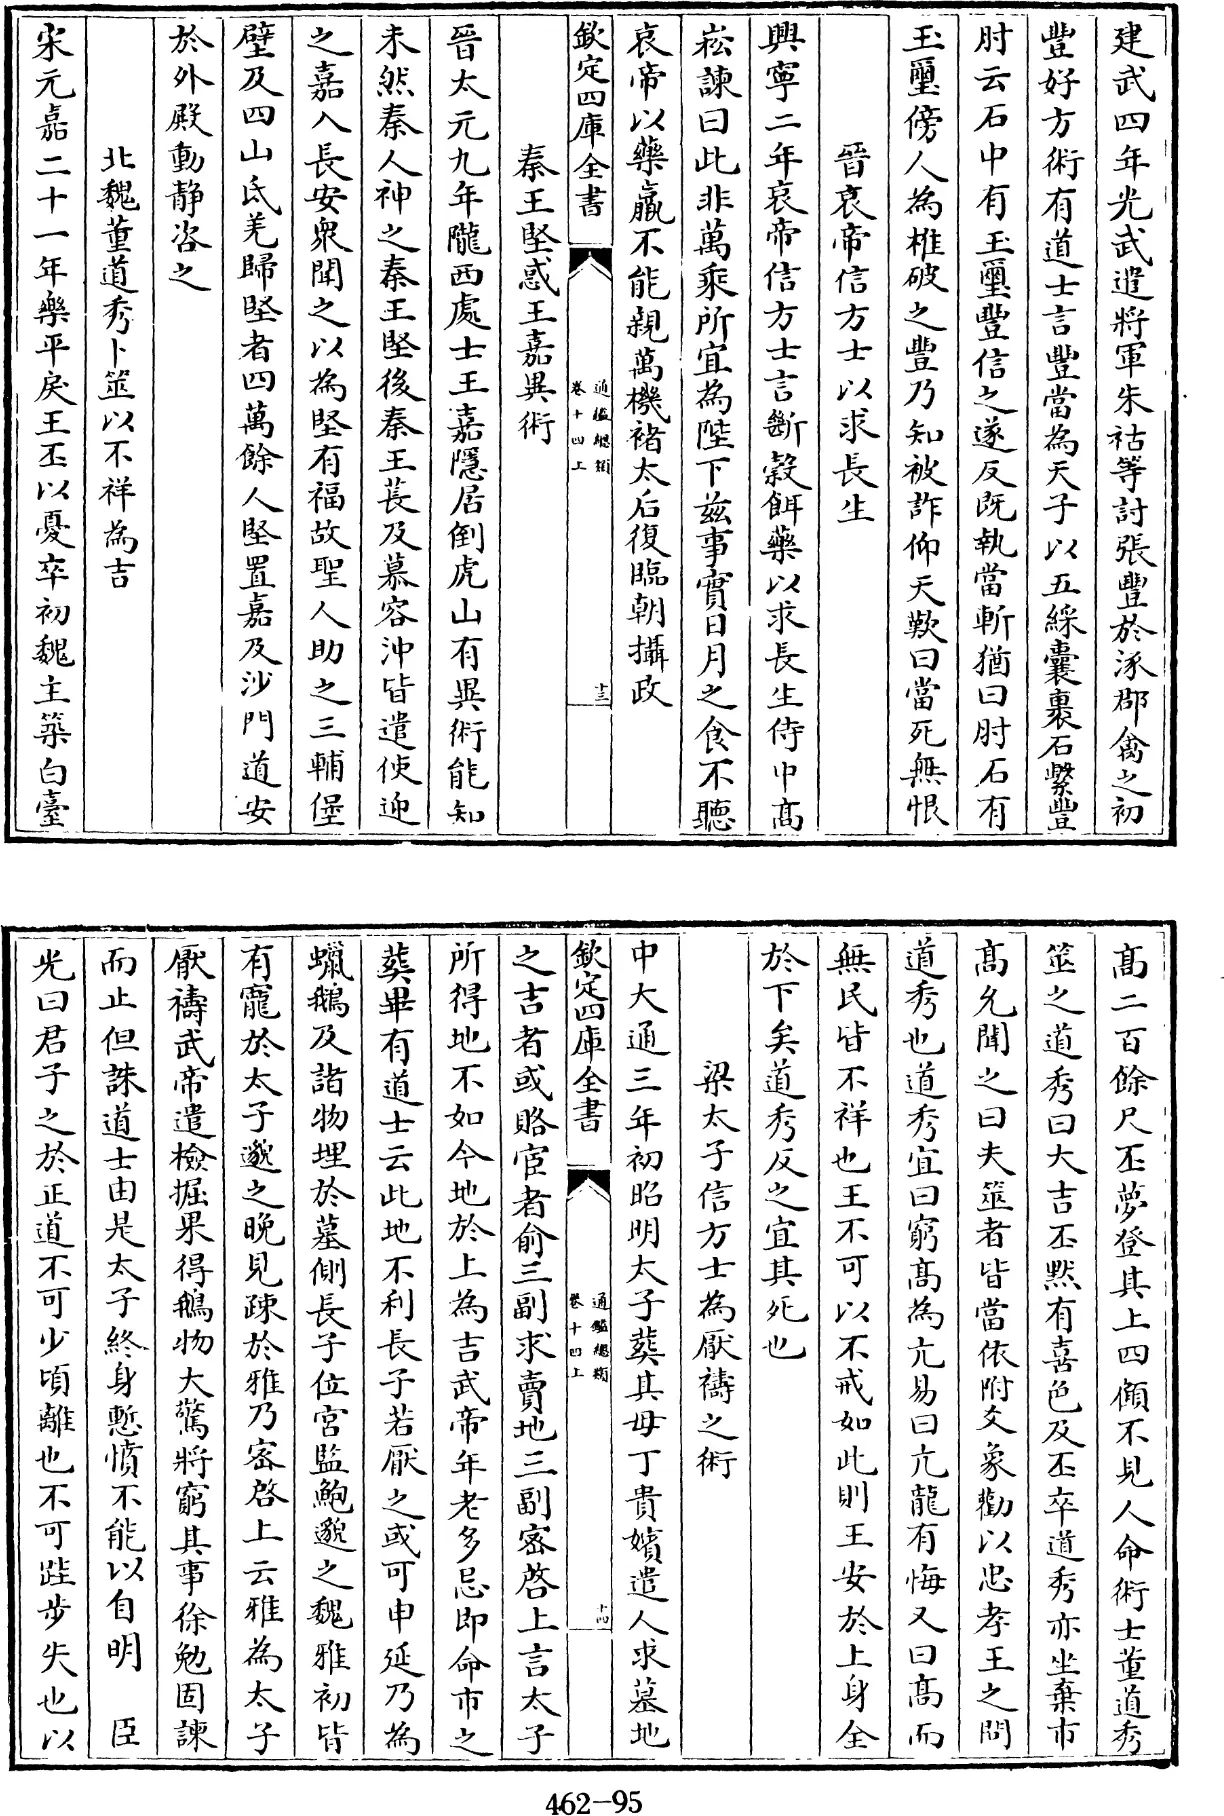 建武四年光武遣將軍朱祜等討張豐於涿郡禽之初
豐好方術有道士言豐當為天子以五綵囊裹石繫豐
肘云石中有玉璽豐信之遂反既執當斬猶曰肘石有
玉璽傍人為椎破之豐乃知被詐仰天歎曰當死無恨
晉哀帝信方士以求長生
興寧二年哀帝信方士言斷穀餌藥以求長生侍中髙
崧諫曰此非萬乘所宜為陛下兹事實日月之食不聽
哀帝以藥羸不能親萬機禇太后復臨朝攝政
欽定四庫全書
通鑑總類
卷十四上
十三
秦王堅惑王嘉異術
晉太元九年隴西處士王嘉隱居倒虎山有異術能知
未然秦人神之秦王堅後秦王萇及慕容沖皆遣使迎
之嘉入長安衆聞之以為堅有福故聖人助之三輔堡
壁及四山氐羌歸堅者四萬餘人堅置嘉及沙門道安
於外殿動静咨之
北魏董道秀卜筮以不祥為吉
宋元嘉二十一年樂平戾王丕以憂卒初魏主築白臺
髙二百餘尺丕夢登其上四顧不見人命術士董道秀
筮之道秀曰大吉丕黙有喜色及丕卒道秀亦坐棄市
髙允聞之曰夫筮者皆當依附爻象勸以忠孝王之問
道秀也道秀宜曰窮髙為亢易曰亢龍有悔又曰髙而
無民皆不祥也王不可以不戒如此則王安於上身全
於下矣道秀反之宜其死也
梁太子信方士為厭禱之術
中大通三年初昭明太子葬其母丁貴嬪遣人求墓地
欽定四庫全書
通鑑總類
卷十四上
十四
之吉者或賂宦者俞三副求賣地三副密啓上言太子
所得地不如今地於上為吉武帝年老多忌即命市之
葬畢有道士云此地不利長子若厭之或可申延乃為
蠟鵝及諸物埋於墓側長子位宮監鮑邈之魏雅初皆
有寵於太子邈之晚見疎於雅乃密啓上云雅為太子
厭禱武帝遣檢掘果得鵝物大驚將窮其事徐勉固諫
而止但誅道士由是太子終身慙憤不能以自明　臣
光曰君子之於正道不可少頃離也不可跬步失也以
462-95